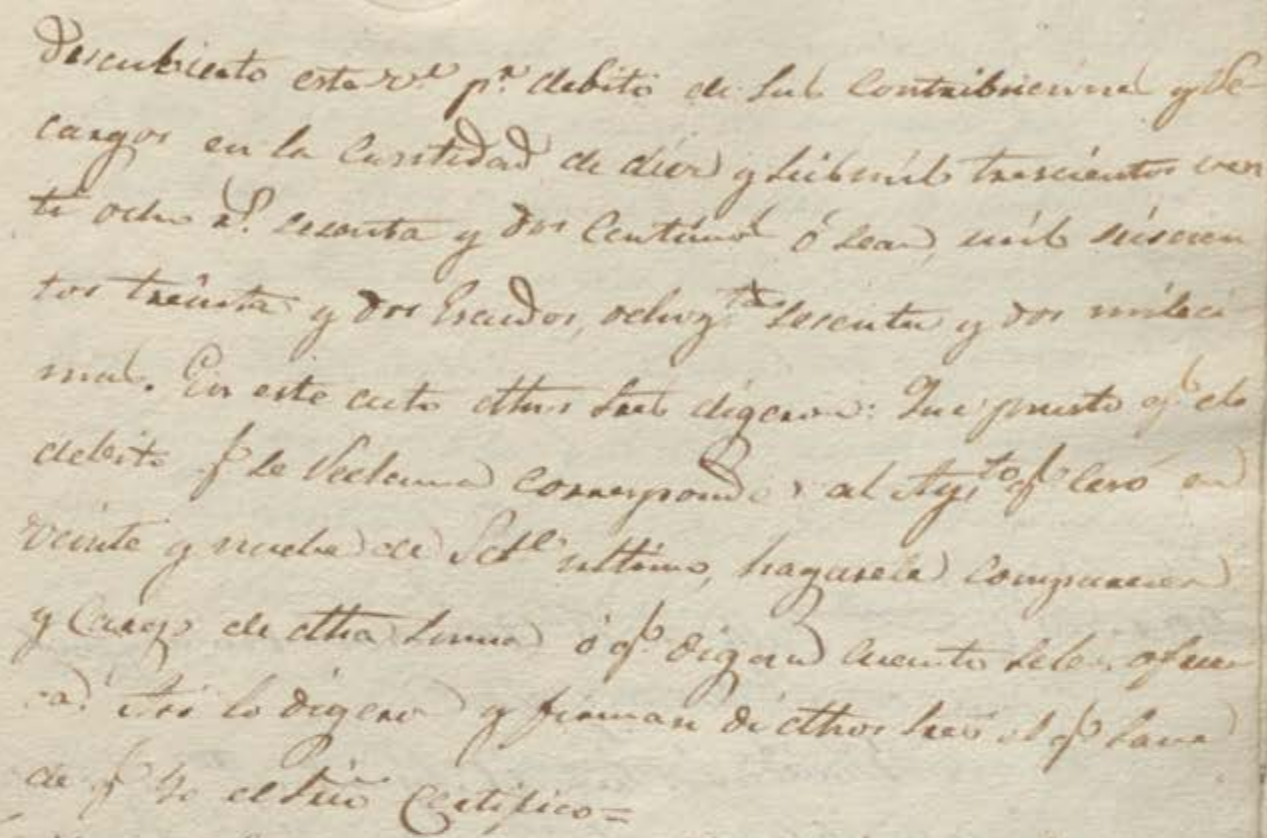 descubierto esta v.ª p.r debito de sus contribuciones y Re-
cargos en la cantidad de diez y seis mil trescientos vein
te ocho r.s sesenta y dos centimos ó sean, mil seiscien
tos treinta y dos Escudos, ochoz.tos sesenta y dos milesi-
mas. En este acto dhos Sres digeron: Que puesto q.e el
debito q.e se reclama corresponde al Ayt.to q.e cesó en
veinte y nueve de Set.e ultimo, hagasele comparecer
y cargo de dha suma ó q.e digan cuanto seles ofrez
ca. Asi lo digeron y firman de dhos Sres el q.e save
de q.e Yo el Srio Certifico=